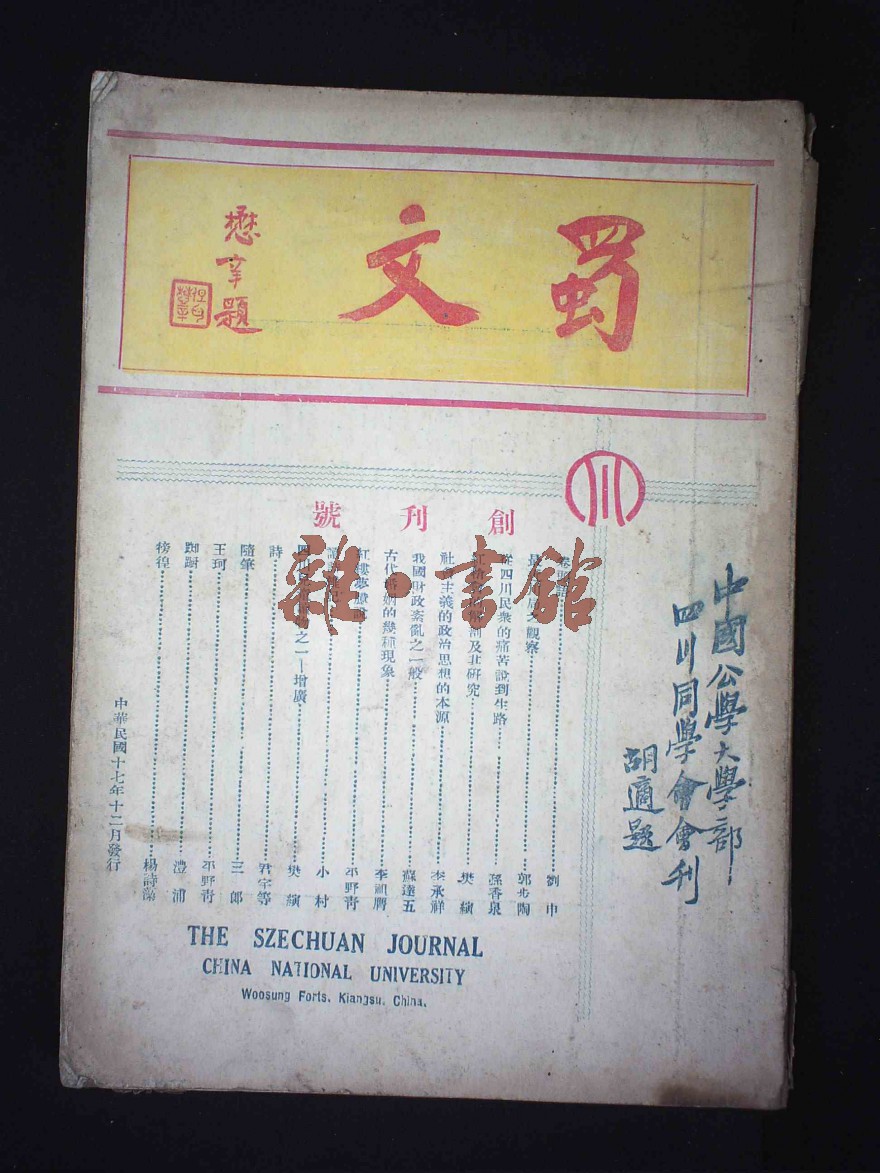 蜀文
懋辛題
川
創刊號
卷頭語 劉中
觀察 郭步陶
從四川民衆的痛苦說到生路 孫香泉
及其研究 樊縯
社會主義的政治思想的本源 李承祥
我國財政紊亂之一般 蘇達五
古代婚姻的幾種現象 李祖膺
紅樓夢 平野青
小村
之一——增廣 樊縯
詩 君宇等
隨筆 三郎
王珂 平野青
踟蹰 澧浦
徬徨 楊詩藻
中華民國十七年十二月發行
中國公學大學部
四川同學會會刊
胡適題
THE SZECHUAN JOURNAL
CHINA NATIONAL UNIVERSITY
Woosung Forts, Kiangsu, China.
雜·書館